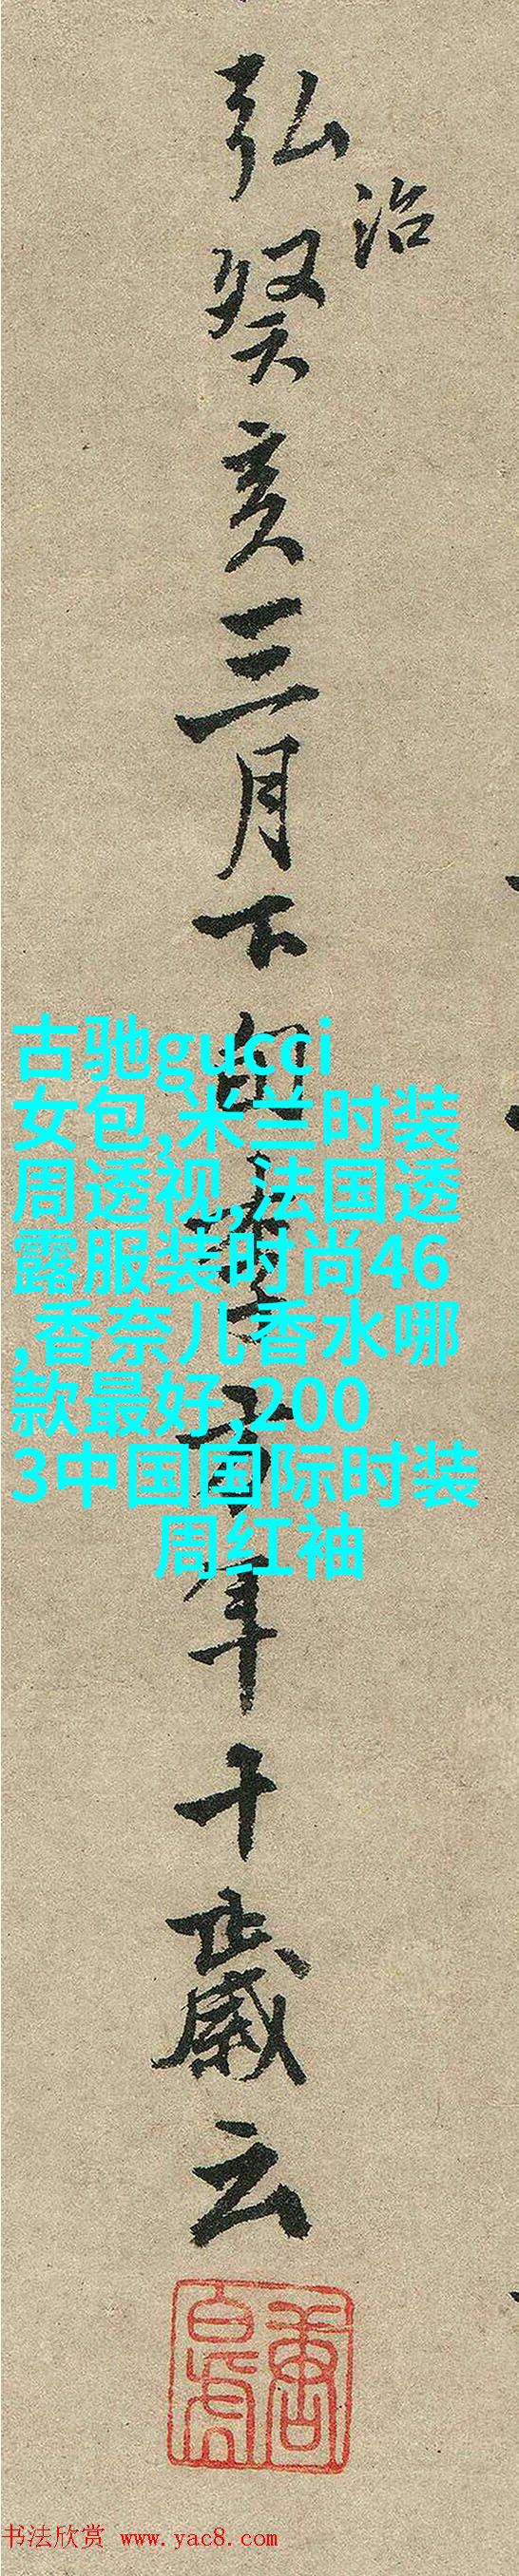 弘治
癸亥三月下旬
年十歲云
古驰gucci
女包,米兰时装
周透视,法国透
露服装时尚46
,香奈儿香水哪
款最好,200
3中国国际时装
周红袖
书法欣赏 www.yac8.com